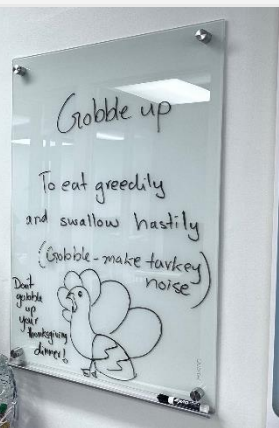 Gobble up
To eat greedily
and swallow hastily
(Gobble-make turkey
noise)
Don't
gobble
up
your
thanksgiving
dinner!